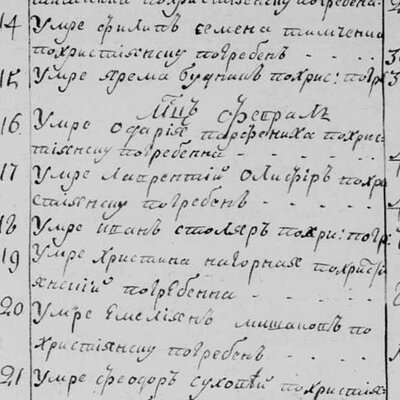 14 Умре филипъ семена тимченка
похристіянску погребенъ
15 Умре ярема будникъ похрис: погре
Мцъ Февраль
16 Умре Агафія парфениха похрис
тіянску погребенна
17 Умре лаврентій олисфіръ похри
стіянску погребенъ
18 Умре иванъ столяръ похри: погр:
19 Умре христина нагорная похристі
янскій погребенна
20 Умре емелиянъ мишакопъ по
христіянску погребенъ
21 Умре феодоръ сухопѣй похристія